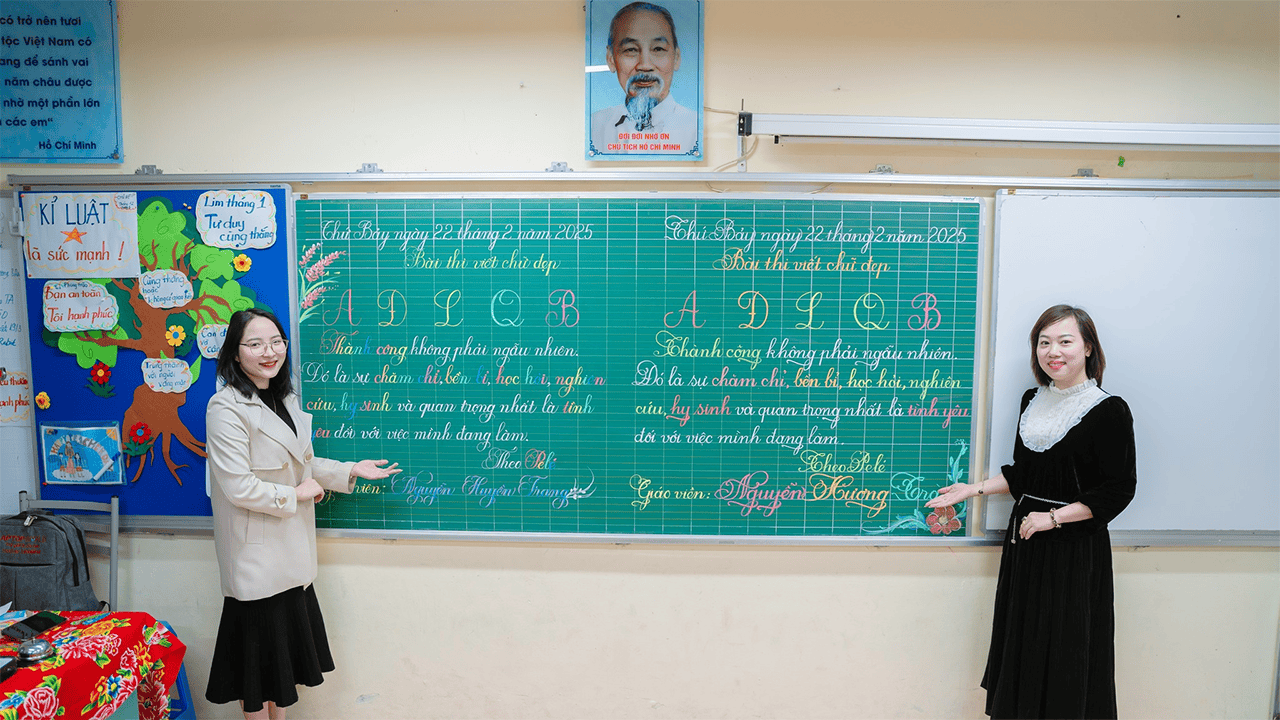 có trở nên tươi
tộc Việt Nam có
ang để sánh vai
năm châu được
nhờ một phần lớn
các em"
Hồ Chí Minh
ĐỜI ĐỜI NHỚ ƠN
CHỦ TỊCH HỒ CHÍ MINH
KỈ LUẬT
là sức mạnh !
Lim tháng 1
Tư duy
cùng thắng
Bạn an toàn
Tôi hạnh phúc
Cùng thắng
hoặc
Trưởng thành
với ngọc
vàng mới
Thứ Bảy ngày 22 tháng 2 năm 2025
Bài thi viết chữ đẹp
A D L Q B
Thành công không phải ngẫu nhiên.
Đó là sự chăm chỉ, bền bỉ, học hỏi, nghiên
cứu, hy sinh và quan trọng nhất là tình
yêu đối với việc mình đang làm.
Theo Pelé
viên: Nguyễn Huyền Trang
Thứ Bảy ngày 22 tháng 2 năm 2025
Bài thi viết chữ đẹp
A D L Q B
Thành công không phải ngẫu nhiên.
Đó là sự chăm chỉ, bền bỉ, học hỏi, nghiên
cứu, hy sinh và quan trọng nhất là tình yêu
đối với việc mình đang làm.
Theo Pelé
Giáo viên: Nguyễn Hương